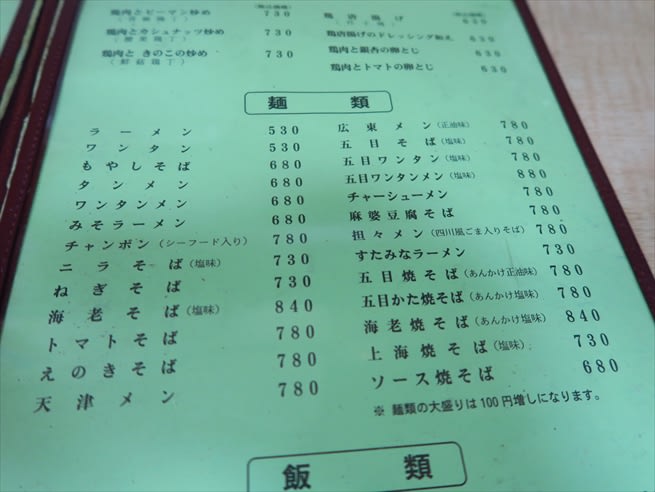 鶏肉とピーマン炒め 730
鶏肉とカシュナッツ炒め 730
鶏肉ときのこの炒め 730
鶏唐揚げ
鶏唐揚げのドレッシング和え 630
鶏肉と銀杏の卵とじ 630
鶏肉とトマトの卵とじ 630
麺類
ラーメン 530
ワンタン 530
もやしそば 680
タンメン 680
ワンタンメン 680
みそラーメン 680
チャンポン(シーフード入り) 780
ニラそば(塩味) 730
ねぎそば 730
海老そば(塩味) 840
トマトそば 780
えのきそば 780
天津メン 780
広東メン(正油味) 780
五目そば(塩味) 780
五目ワンタン(塩味) 780
五目ワンタンメン(塩味) 880
チャーシューメン 780
麻婆豆腐そば 780
担々メン(四川風ごま入りそば) 780
すたみなラーメン 730
五目焼そば(あんかけ正油味) 780
五目かた焼そば(あんかけ塩味) 780
海老焼そば(あんかけ塩味) 840
上海焼そば(塩味) 730
ソース焼そば 680
※ 麺類の大盛りは100円増しになります。
飯類